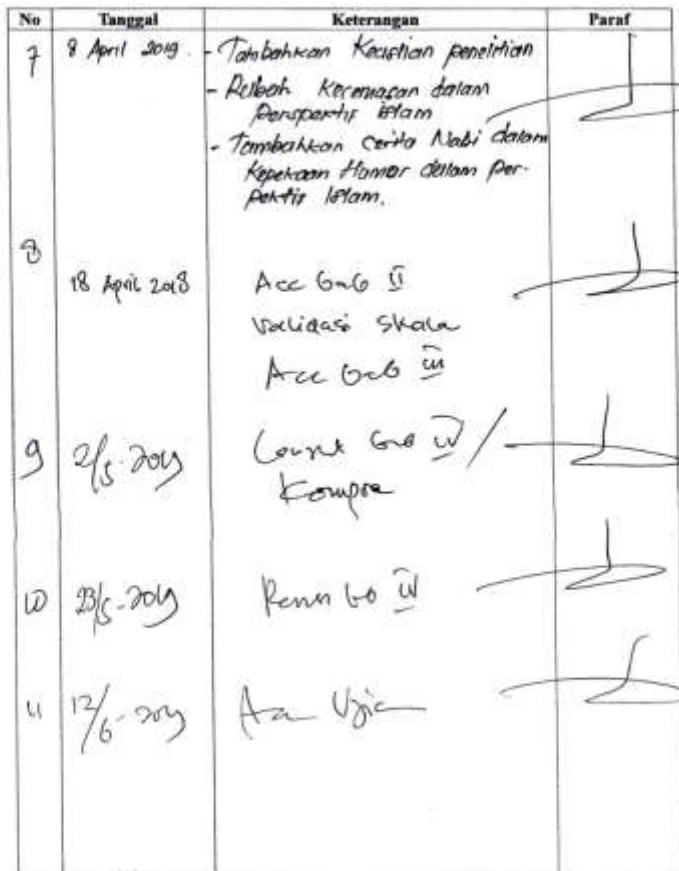 No Tanggal Keterangan Paraf
7 8 April 2019. - Tambahkan Keaslian penelitian
- Rubah Kecemasan dalam
Perspektif Islam
- Tambahkan Cerita Nabi dalam
Kepekaan Humor dalam Per-
pektif Islam.
8
18 April 2018 Acc bab II
Validasi Skala
Acc bab III
9 2/5-2019 Lanjut bab IV /
Kompre
10 23/5-2019 bab IV
11 12/6-2019 Acc Ujian